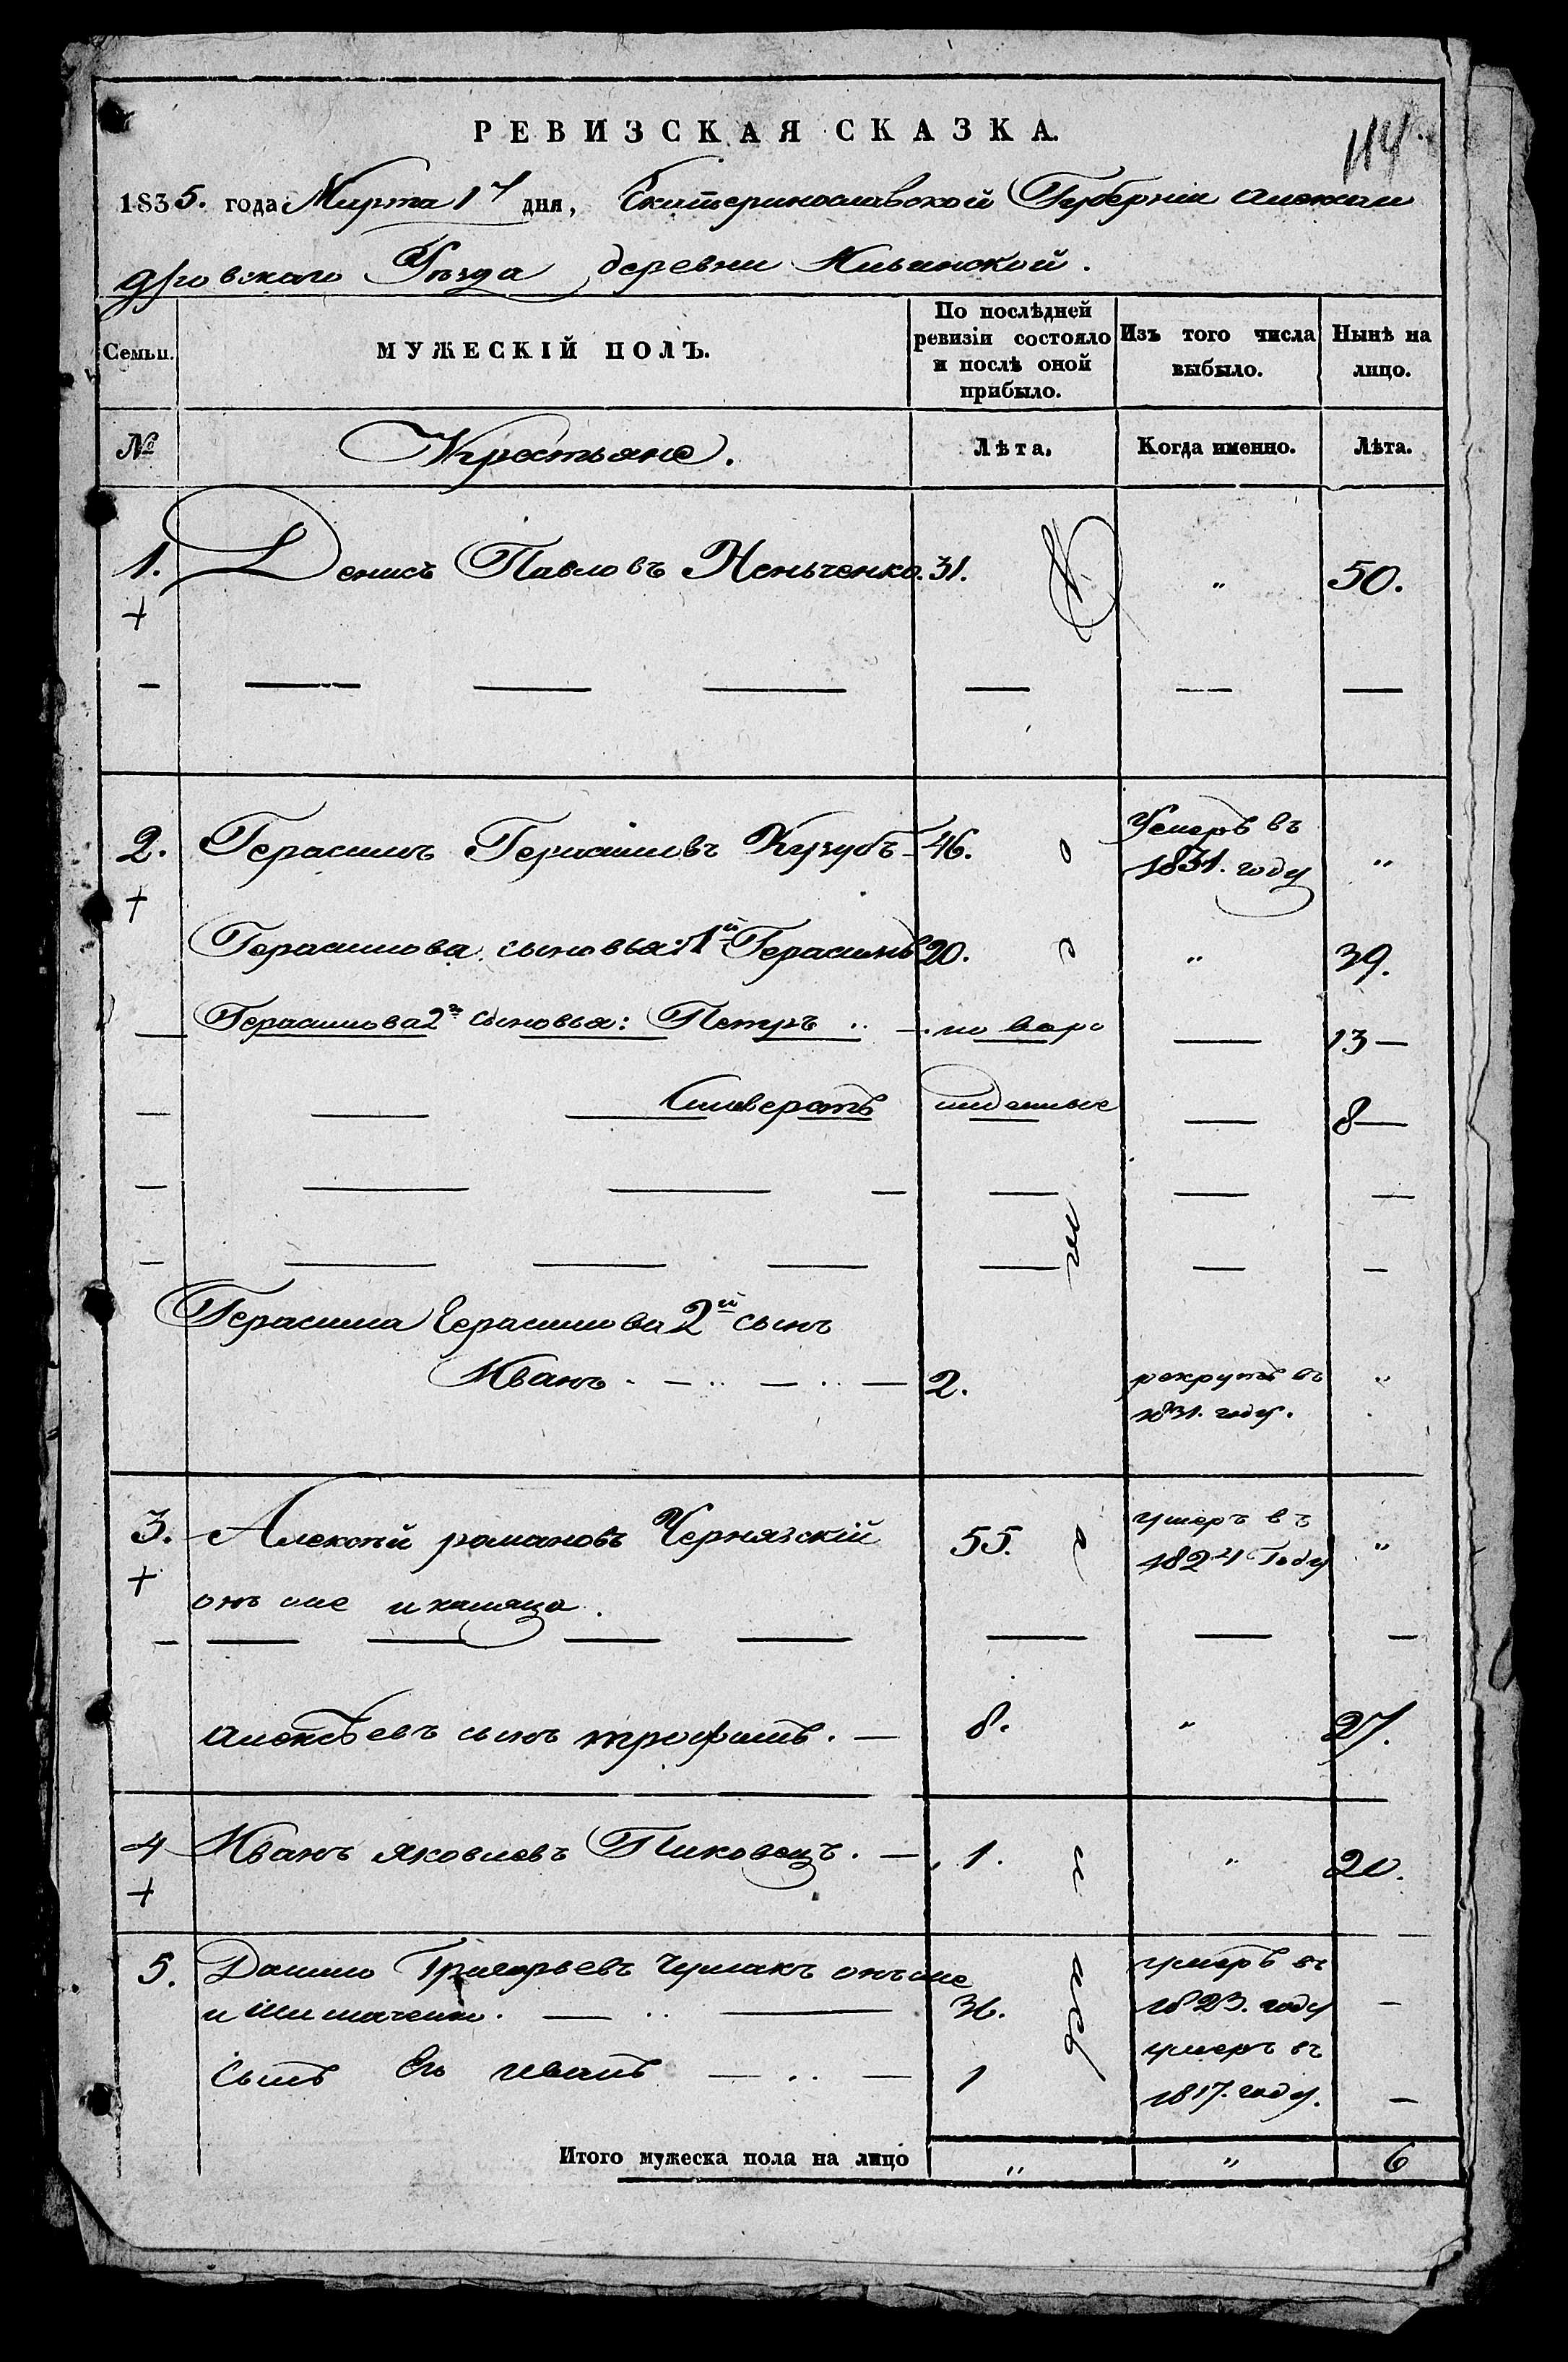 РЕВИЗСКАЯ СКАЗКА.
114.
1835. года Марта 17 дня, Екатеринославской Губернiи Алексан
дровскаго Уѣзда деревни Ильинской.
Семьи.
МУЖЕСКІЙ ПОЛЪ.
По послѣдней ревизіи состояло и послѣ оной прибыло.
Изъ того числа выбыло.
Нынѣ на лицо.
№
Крестьяне.
Лѣта.
Когда именно.
Лѣта.
1. Денисъ Павловъ Неньченко. 31. „ 50.
+
2. Герасимъ Герасимовъ Кузубъ 46. Умеръ въ 1831. году „
+
Герасимова сыновья: 1й Герасимъ 20. „ 39.
Герасимова 2го сыновья: Петръ по воро 13 —
Селиверстъ 8 —
Герасима Герасимова 2й сынъ
Иванъ 2. рекрутъ въ 1831. году. „
3. Алексѣй романовъ Чернявскій 55. умеръ въ 1824 Году „
+
онъ же и
Алексѣевъ сынъ трофимъ. — 8. „ 27.
4 Иванъ яковлевъ Пиковецъ. — 1. „ 20.
+
5. Данило Григорьевъ Чумакъ онъ же
и 36. умеръ въ 1823. году —
Сынъ Его иванъ 1 умеръ въ 1817. году. —
Итого мужеска пола на лицо „ „ 6